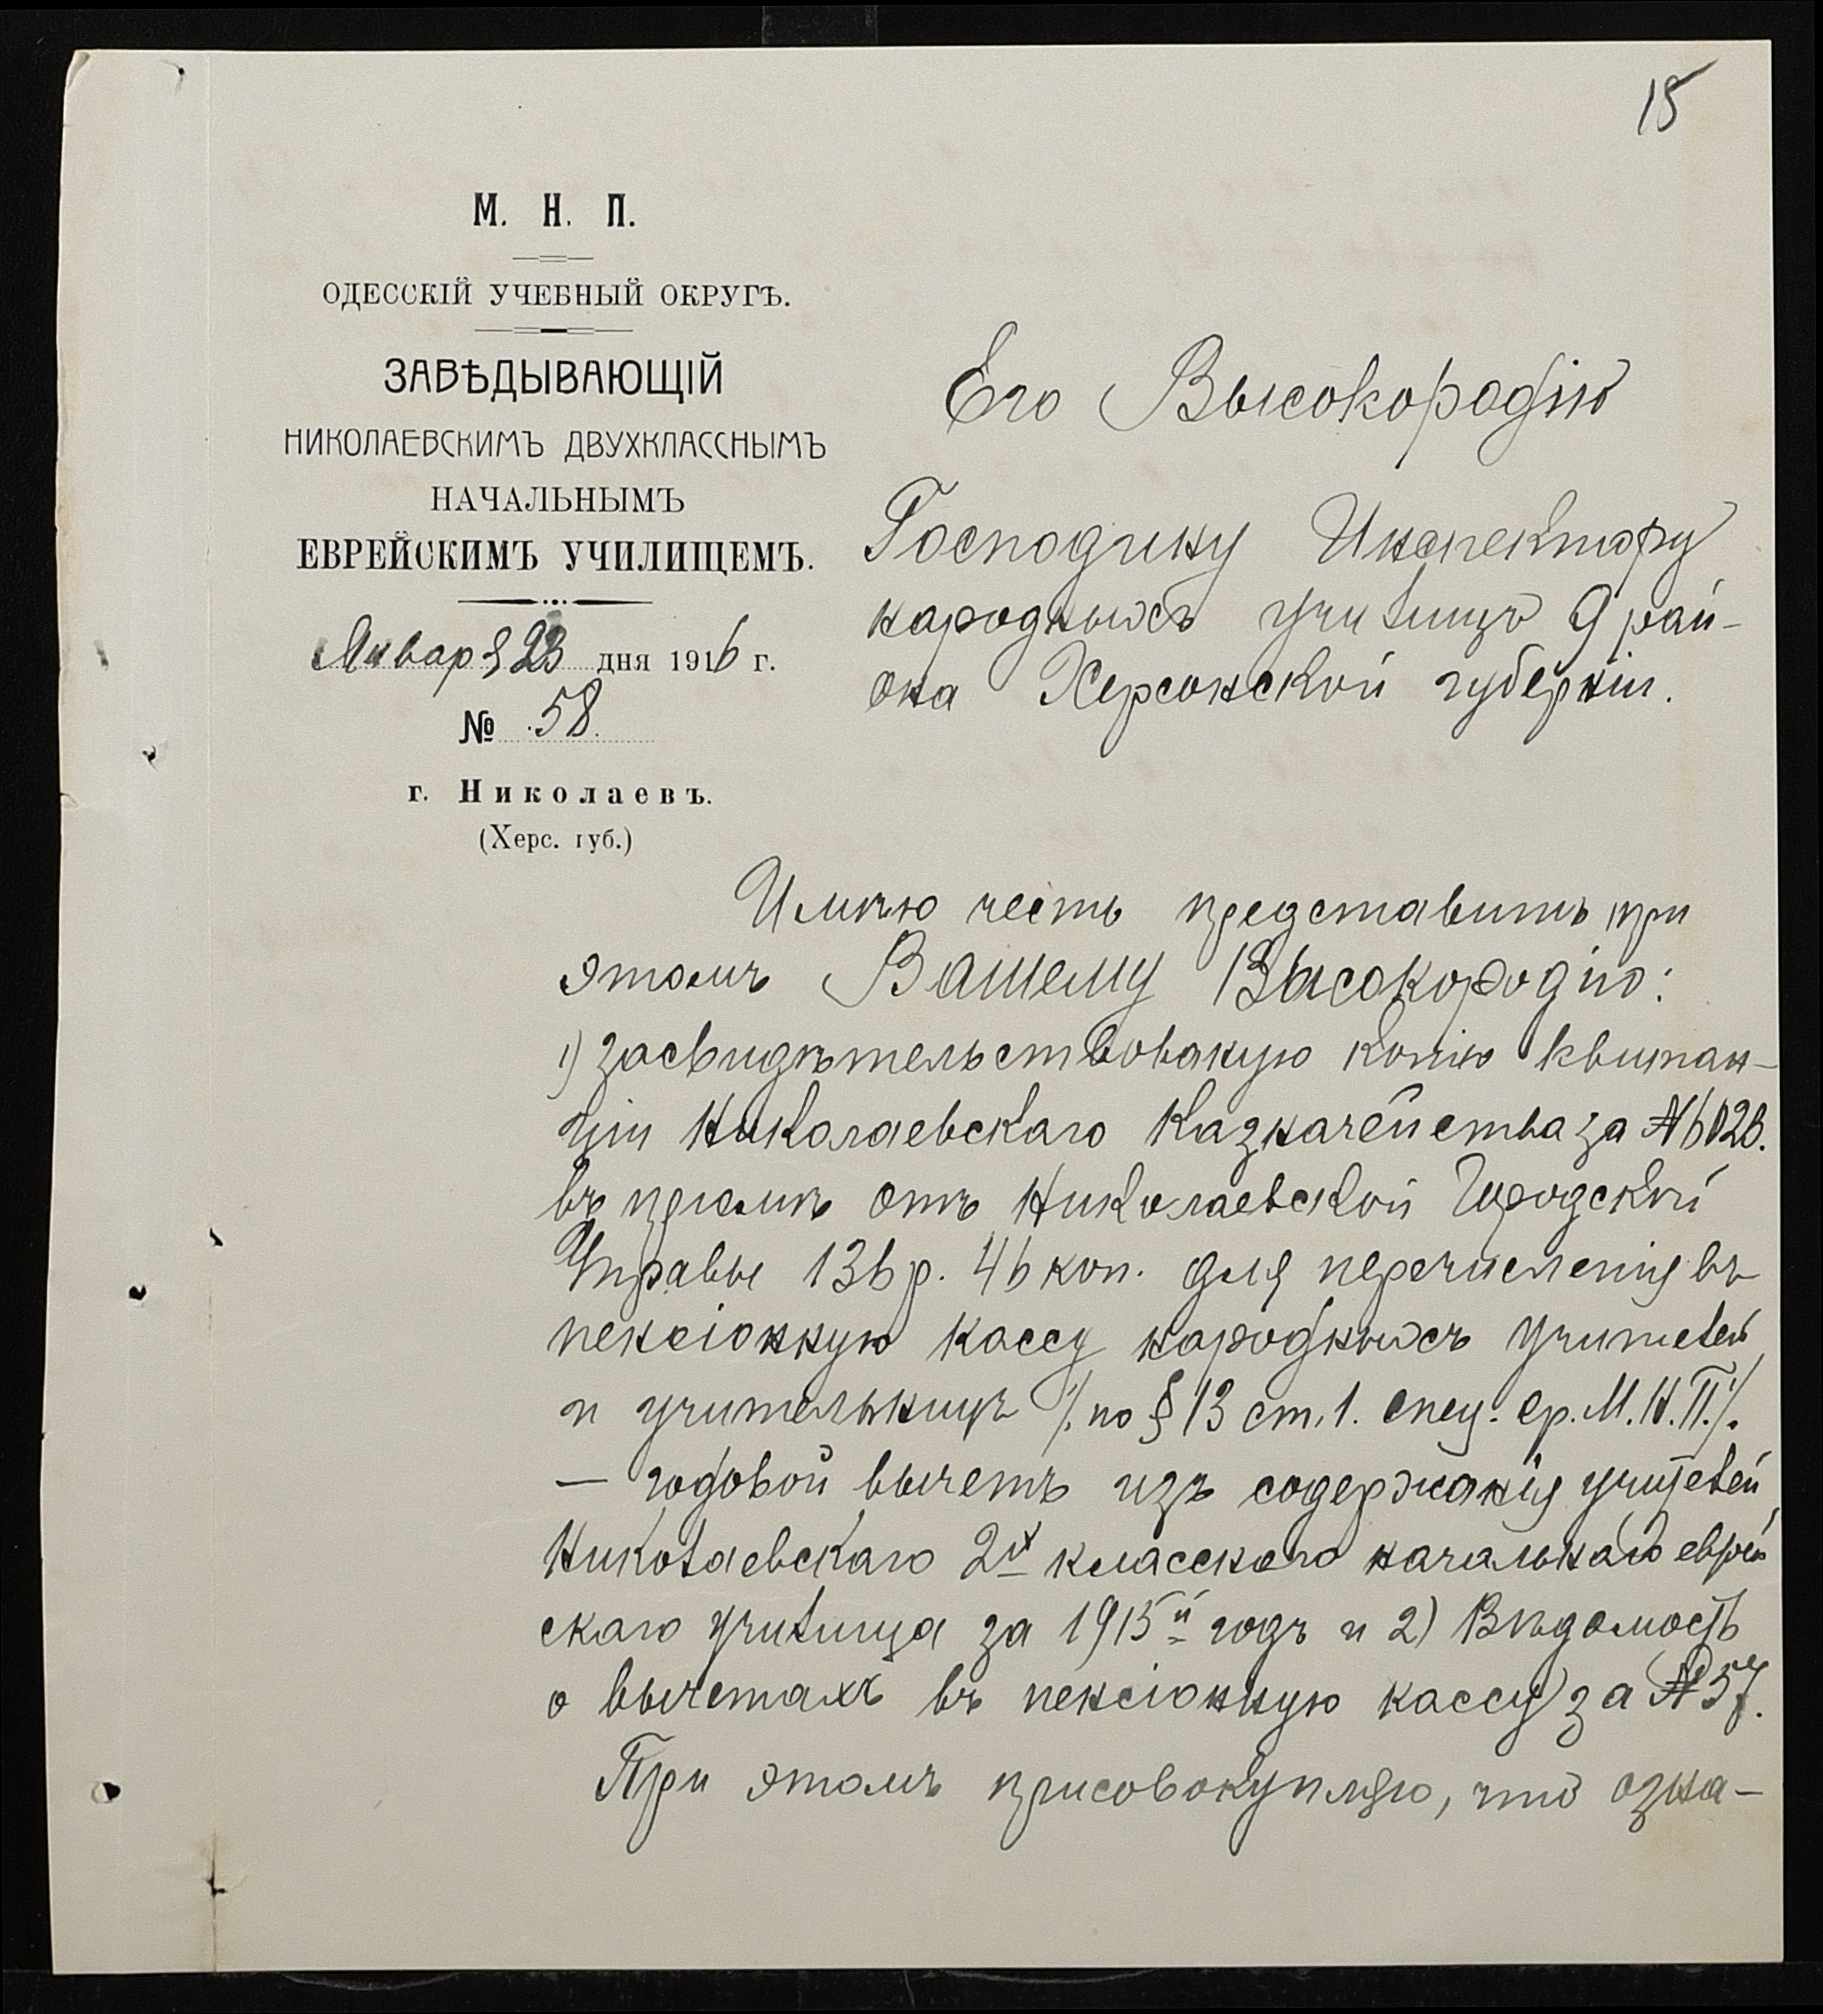 15
М. Н. П.
ОДЕССКІЙ УЧЕБНЫЙ ОКРУГЪ.
ЗАВѢДЫВАЮЩІЙ
НИКОЛАЕВСКИМЪ ДВУХКЛАССНЫМЪ
НАЧАЛЬНЫМЪ
ЕВРЕЙСКИМЪ УЧИЛИЩЕМЪ.
Января 23 дня 1916 г.
№ 58.
г. Николаевъ.
(Херс. губ.)
Его Высокородію
Господину Инспектору
народныхъ училищъ 9 рай-
она Херсонской губерніи.
Имѣю честь представить при
этомъ Вашему Высокородію:
1) засвидѣтельствованую копію квитан-
ціи Николаевскаго Казначейства за №
въ пріемѣ отъ Николаевской Городской
Управы 136 р. 46 коп. для перечисленія въ
пенсіонную кассу народныхъ учителей
и учительницъ /. по § 13 ст. 1. спец. ср. М. Н. П. /.
— годовой вычетъ изъ содержанія учителей
Николаевскаго 2х класснаго начальнаго еврей
скаго училища за 1915й годъ и 2) Вѣдомость
о вычетахъ въ пенсіонную кассу за № 57.
При этомъ присовокупляю, что озна-